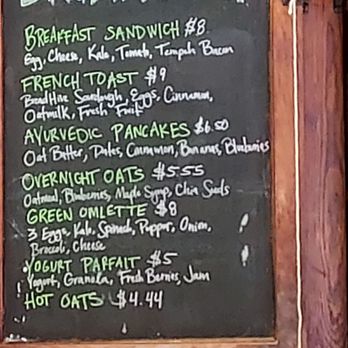 BREAKFAST SANDWICH $8
Egg, Cheese, Kale, Tomato, Tempah Bacon
FRENCH TOAST $9
BreadHive Sourdough, Eggs, Cinnamon,
Oatmilk, Fresh Fruit
AYURVEDIC PANCAKES $6.50
Oat Batter, Dates, Cinnamon, Bananas, Blueberries
OVERNIGHT OATS $5.55
Oatmeal, Blueberries, Maple Syrup, Chia Seeds
GREEN OMLETTE $8
3 Eggs, Kale, Spinach, Pepper, Onion,
Broccoli, Cheese
YOGURT PARFAIT $5
Yogurt, Granola, Fresh Berries, Jam
HOT OATS $4.44